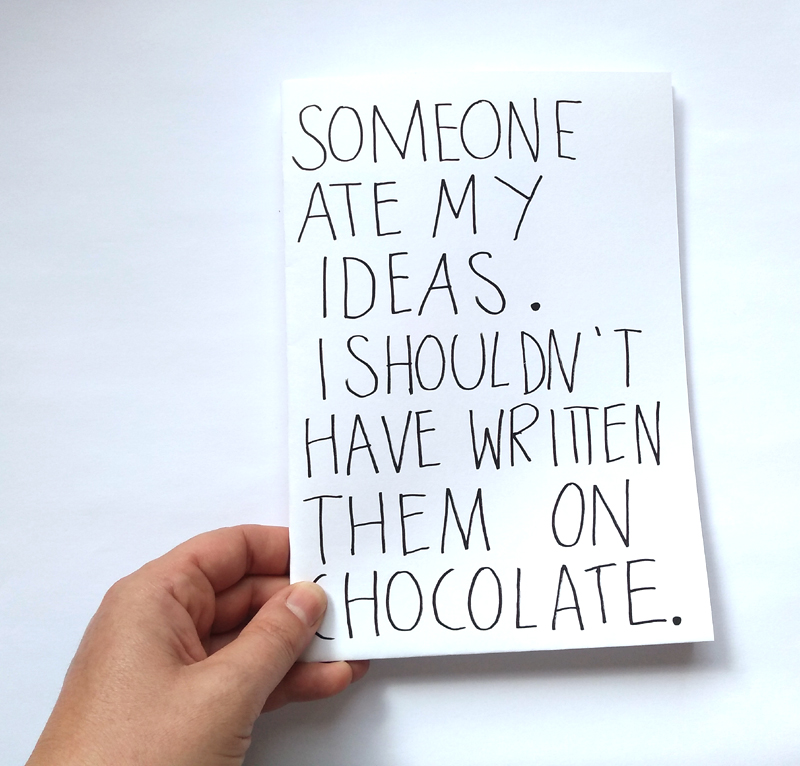 SOMEONE
ATE MY
IDEAS.
I SHOULDN'T
HAVE WRITTEN
THEM ON
CHOCOLATE.